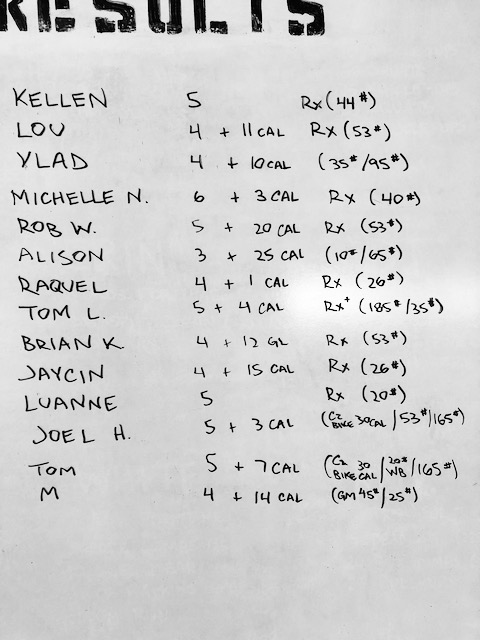 RESULTS
KELLEN 5 Rx (44#)
LOU 4 + 11 CAL Rx (53#)
VLAD 4 + 10 CAL (35#/95#)
MICHELLE N. 6 + 3 CAL Rx (40#)
ROB W. 5 + 20 CAL Rx (53#)
ALISON 3 + 25 CAL (10#/65#)
RAQUEL 4 + 1 CAL Rx (26#)
TOM L. 5 + 4 CAL Rx+ (185#/35#)
BRIAN K. 4 + 12 CAL Rx (53#)
JAYCIN 4 + 15 CAL Rx (26#)
LUANNE 5 Rx (20#)
JOEL H. 5 + 3 CAL (C2 BIKE 30 CAL/53#/165#)
TOM 5 + 7 CAL (C2 BIKE 30 CAL/20# WB/165#)
M 4 + 14 CAL (GM 45#/25#)